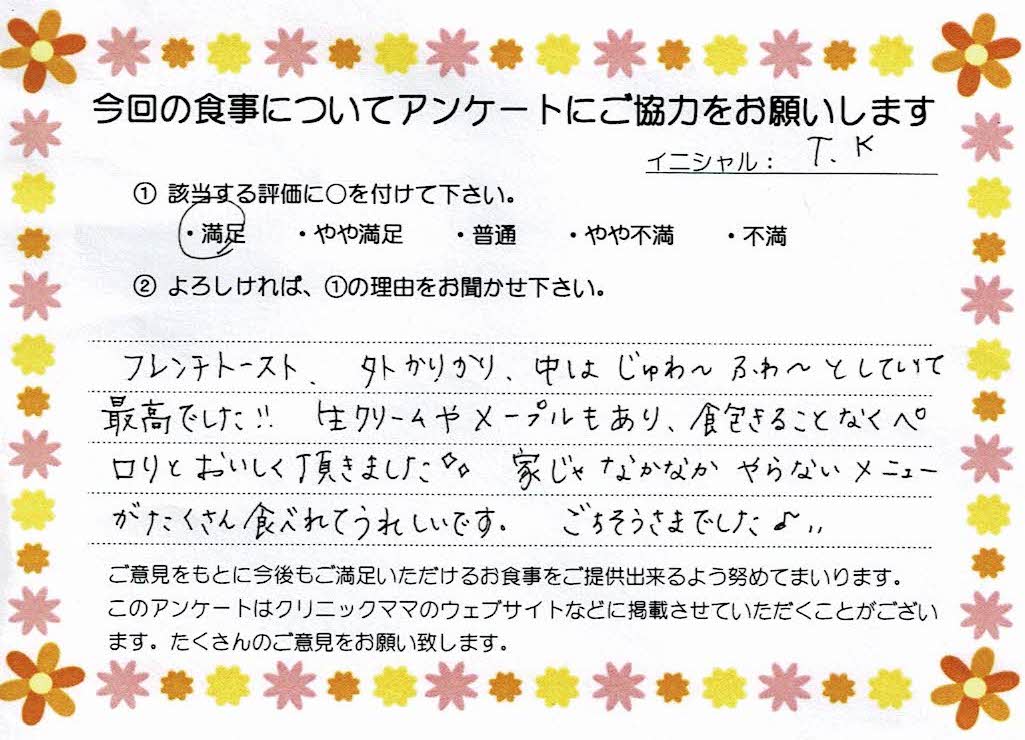 今回の食事についてアンケートにご協力をお願いします
イニシャル： T.K
① 該当する評価に○を付けて下さい。
・満足 ・やや満足 ・普通 ・やや不満 ・不満
② よろしければ、①の理由をお聞かせ下さい。
フレンチトースト、外かりかり、中はじゅわ〜ふわ〜としていて
最高でした!! 生クリームやメープルもあり、食飽きることなくペ
ロりとおいしく頂きました 家じゃなかなかやらないメニュー
がたくさん食べれてうれしいです。 ごちそうさまでした♪
ご意見をもとに今後もご満足いただけるお食事をご提供出来るよう努めてまいります。
このアンケートはクリニックママのウェブサイトなどに掲載させていただくことがござい
ます。たくさんのご意見をお願い致します。